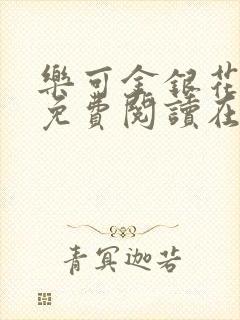 樂可金銀花
免費閱讀在
青冥迦若